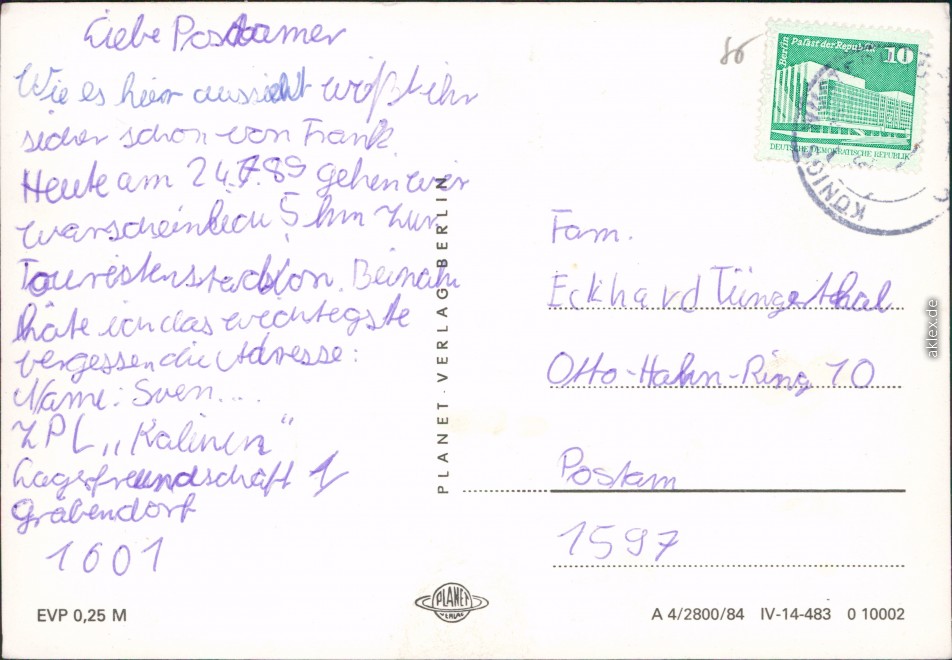 Liebe Postdamer
Wie es hier aussieht wißt ihr
sicher schon von Frank
Heute am 24.7.89 gehen wir
warscheinlich 5 km zur
Touristenstadion. Beinah
häte ich das wichtegste
vergessen die Adresse:
Name: Sven....
ZPL „Kalinin“
Lagerfreundschaft 1
Gräbendorf
1601
EVP 0,25 M
PLANET · VERLAG BERLIN
PLANET
VERLAG
80
Berlin Palast der Republik 10
DEUTSCHE DEMOKRATISCHE REPUBLIK
KÖNIGS
Fam.
Eckhard Tüngethal
Otto-Hahn-Ring 10
Postam
1597
A 4/2800/84 IV-14-483 0 10002
aklex.de